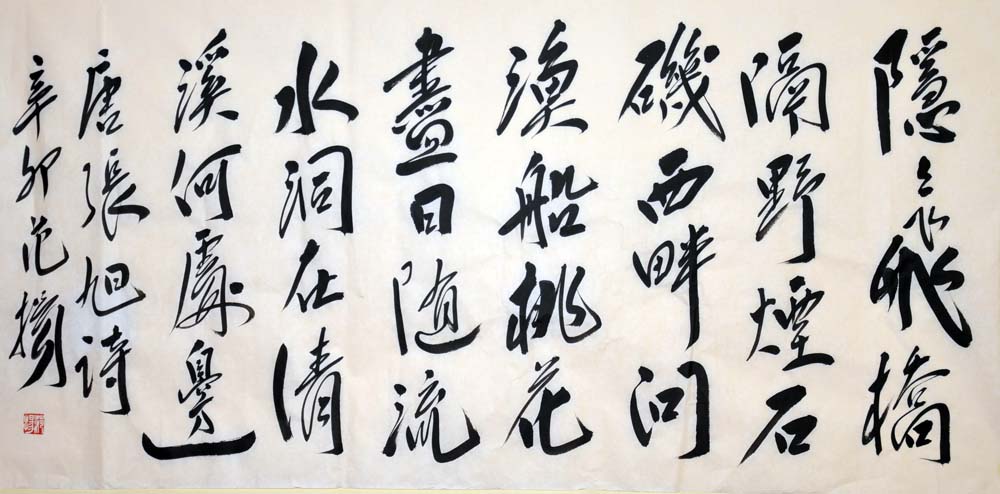 隱〻飛橋
隔野煙石
磯西畔问
漁船桃花
盡日随流
水洞在清
溪何處邊
唐張旭诗
辛卯范